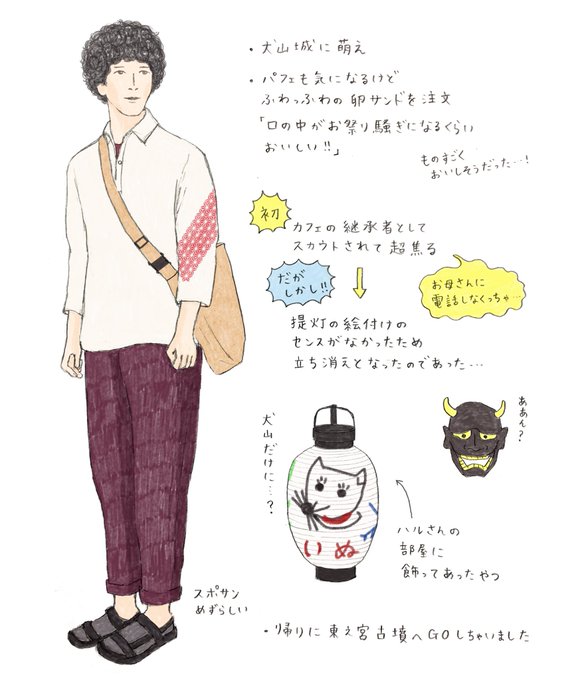 ・犬山城に萌え
・パフェも気になるけど
ふわっふわの卵サンドを注文
「口の中がお祭り騒ぎになるくらい
おいしい!!」
ものすごく
おいしそうだった…!
初
カフェの継承者として
スカウトされて超焦る
だが
しかし!!
お母さんに
電話しなくっちゃ…
提灯の絵付けの
センスがなかったため
立ち消えとなったのであった…
犬山だけに…?
いぬ
ああん?
ハルさんの
部屋に
飾ってあったやつ
スポサン
めずらしい
・帰りに東之宮古墳へGOしちゃいました